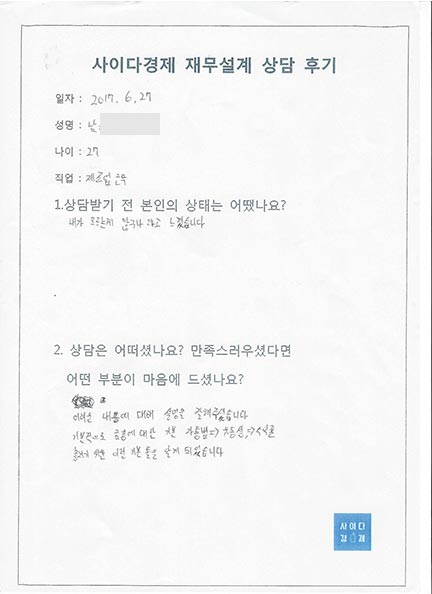 사이다경제 재무설계 상담 후기
일자 : 2017. 6. 27
성명 : 남
나이 : 27
직업 : 제조업 근무
1.상담받기 전 본인의 상태는 어땠나요?
내가 모르는게 많구나 라고 느꼈습니다
2. 상담은 어떠셨나요? 만족스러우셨다면
어떤 부분이 마음에 드셨나요?
어려운 내용에 대해 설명을 잘해주셨습니다
기본적으로 금융에 대한 기본
이런 기본 들을 알게 되었습니다
사이다
경제